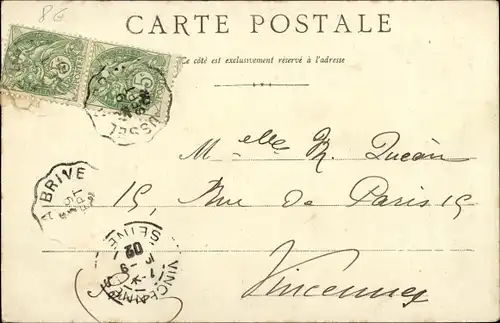 8€
CARTE POSTALE
Ce côté est exclusivement réservé à l'adresse
USSEL
A BRIVE
SEPT
Melle R.
15, Rue de Paris 15
Vincennes
VINCENNES
SEINE
02